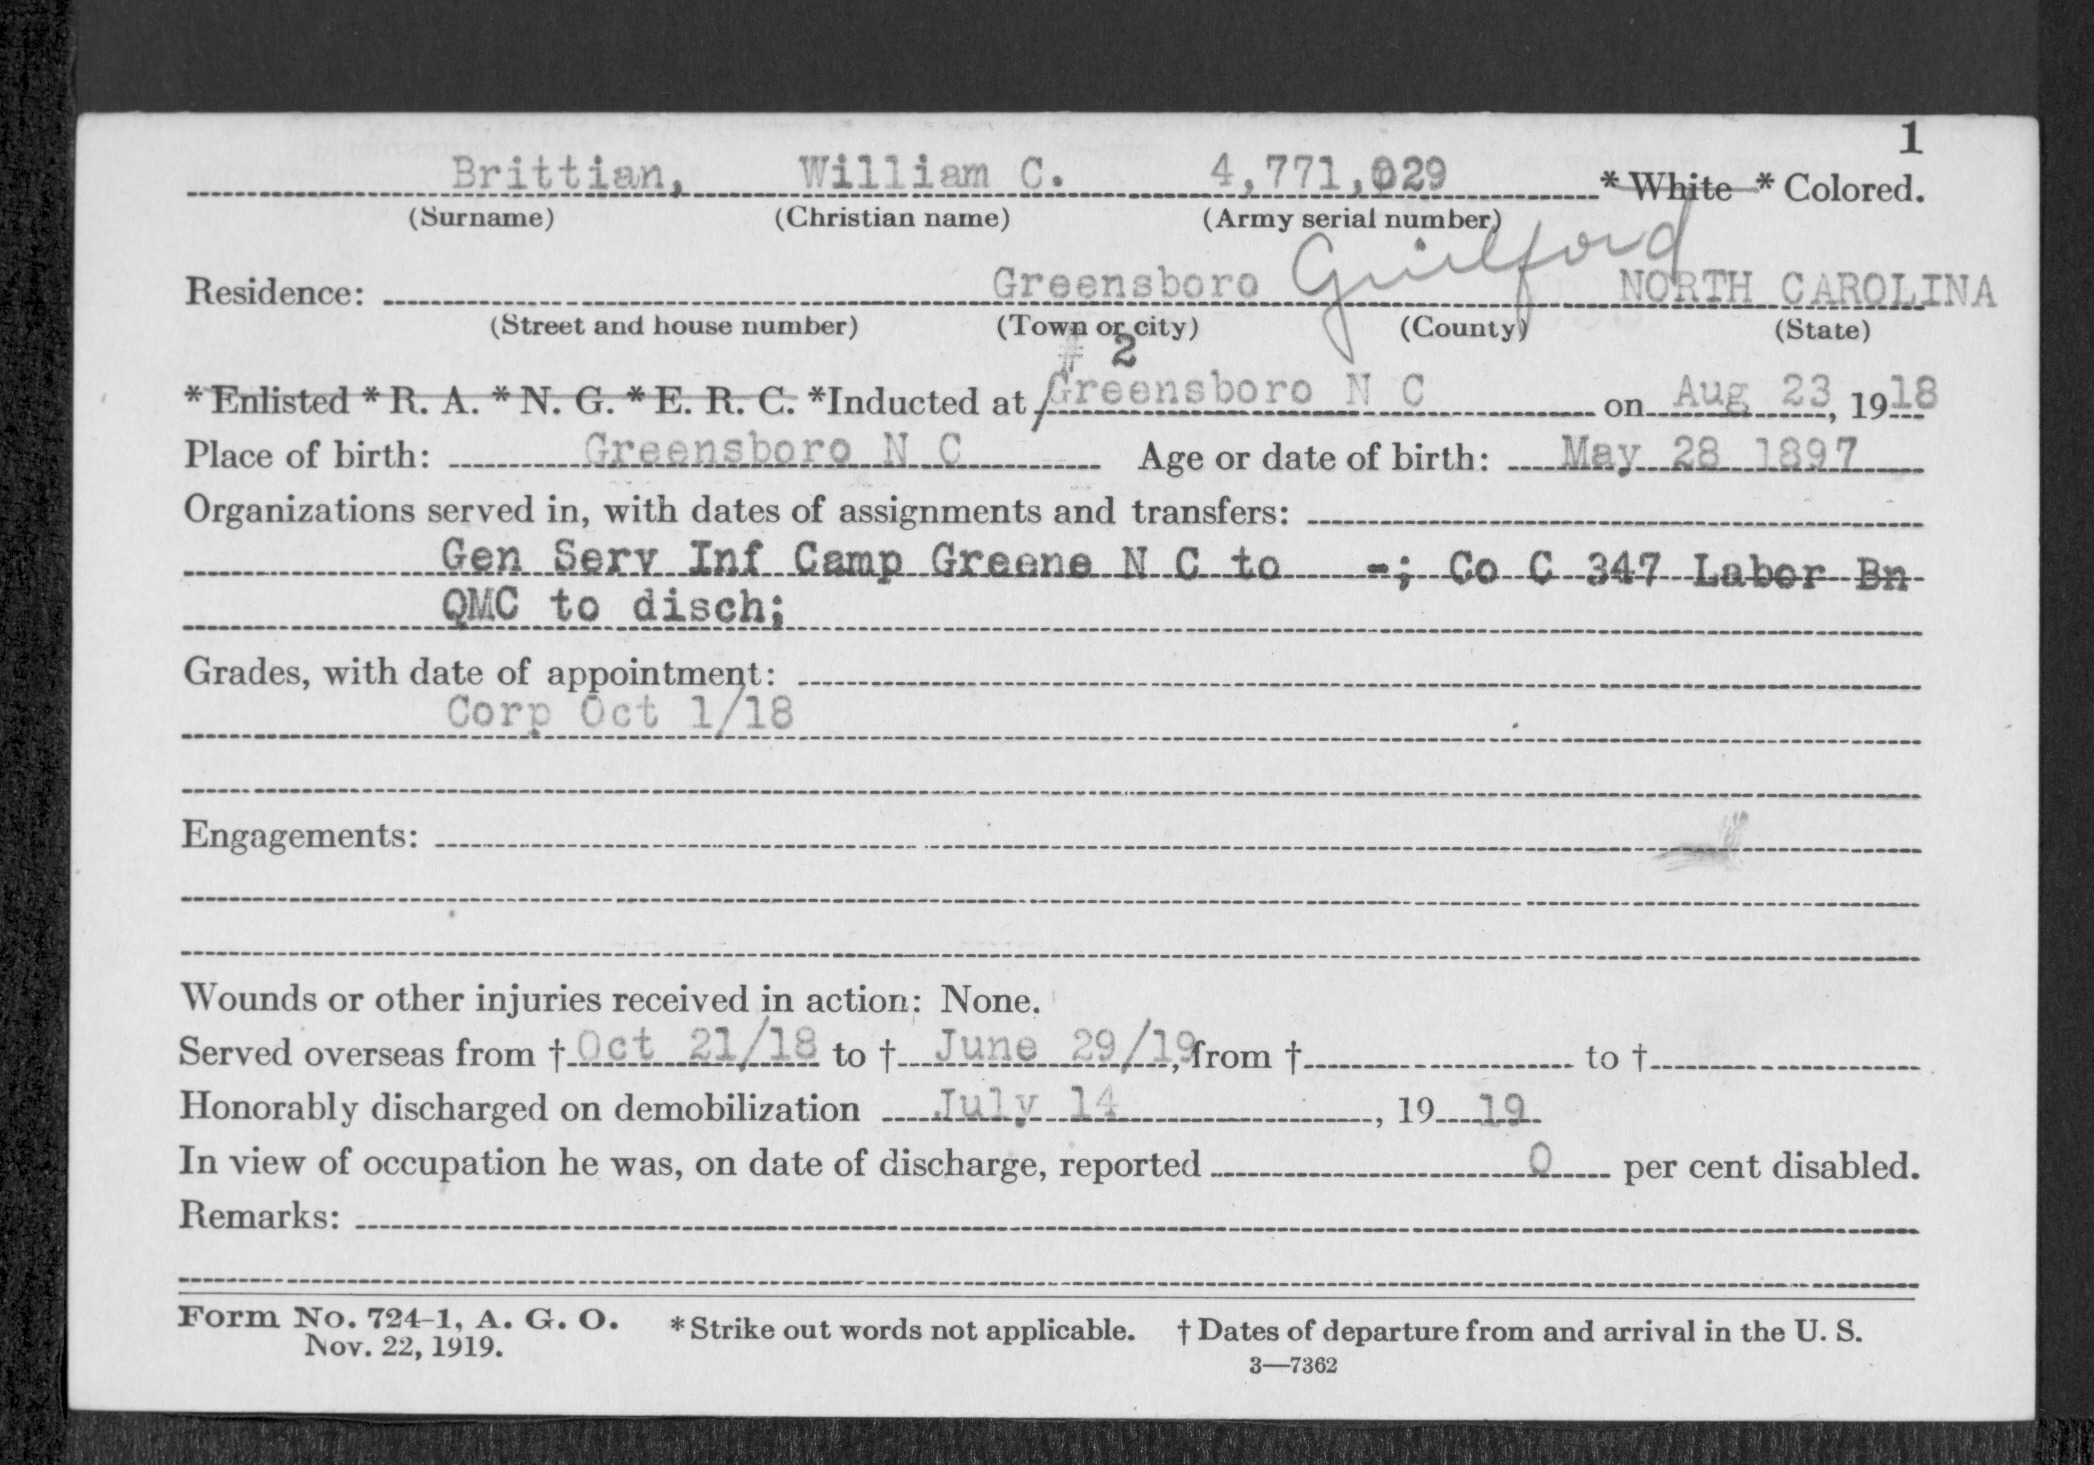 1
Brittian, William C. 4,771,029 * White * Colored.
(Surname) (Christian name) (Army serial number)
Residence: Greensboro Guilford NORTH CAROLINA
(Street and house number) (Town or city) (County) (State)
# 2
* Enlisted * R. A. * N. G. * E. R. C. *Inducted at / Greensboro N C on Aug 23, 1918
Place of birth: Greensboro N C Age or date of birth: May 28 1897
Organizations served in, with dates of assignments and transfers:
Gen Serv Inf Camp Greene N C to -; Co C 347 Labor Bn
QMC to disch;
Grades, with date of appointment:
Corp Oct 1/18
Engagements:
Wounds or other injuries received in action: None.
Served overseas from † Oct 21/18 to † June 29/19, from † to †
Honorably discharged on demobilization July 14, 1919
In view of occupation he was, on date of discharge, reported 0 per cent disabled.
Remarks:
Form No. 724-1, A. G. O. * Strike out words not applicable. † Dates of departure from and arrival in the U. S.
Nov. 22, 1919.
3—7362